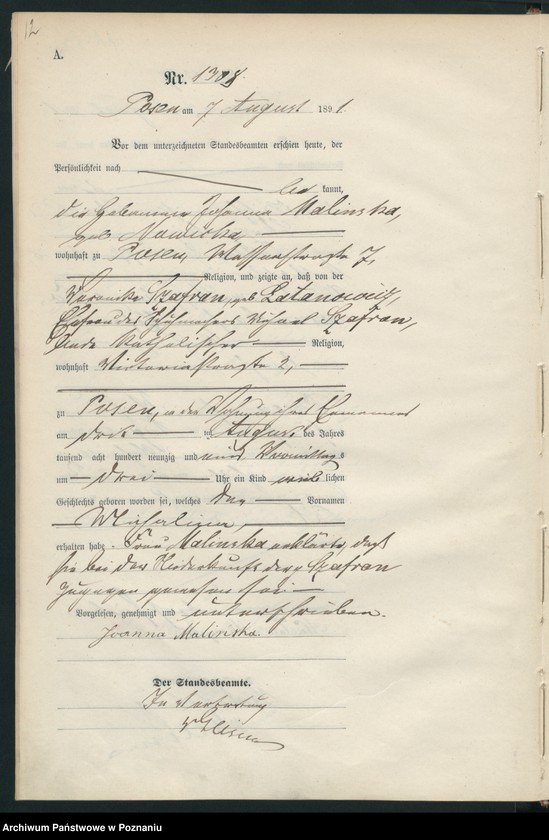 12
A.
Nr. 1308.
Posen am 7 August 1891.
Vor dem unterzeichneten Standesbeamten erschien heute, der
Persönlichkeit nach
kannt,
die Hebamme Johanna Malinska,
geb Nawicka
wohnhaft zu Posen, Wasserstraße 7,
Religion, und zeigte an, daß von der
Szafran, geb Latanowicz,
Ehefrau des Schuhmachers Michael Szafran,
beide katholischer Religion,
wohnhaft Victoriastraße 2,
zu Posen, in der Wohnung ihres Ehemannes
am drei ten August des Jahres
tausend acht hundert neunzig und eins Vormittags
um drei Uhr ein Kind weib lichen
Geschlechts geboren worden sei, welches den Vornamen
erhalten habe. Frau Malinska erklärte, daß
sie bei der Niederkunft der Szafran
zugegen gewesen sei
Vorgelesen, genehmigt und unterschrieben.
Joanna Malińska.
Der Standesbeamte.
In Vertretung
Archiwum Państwowe w Poznaniu